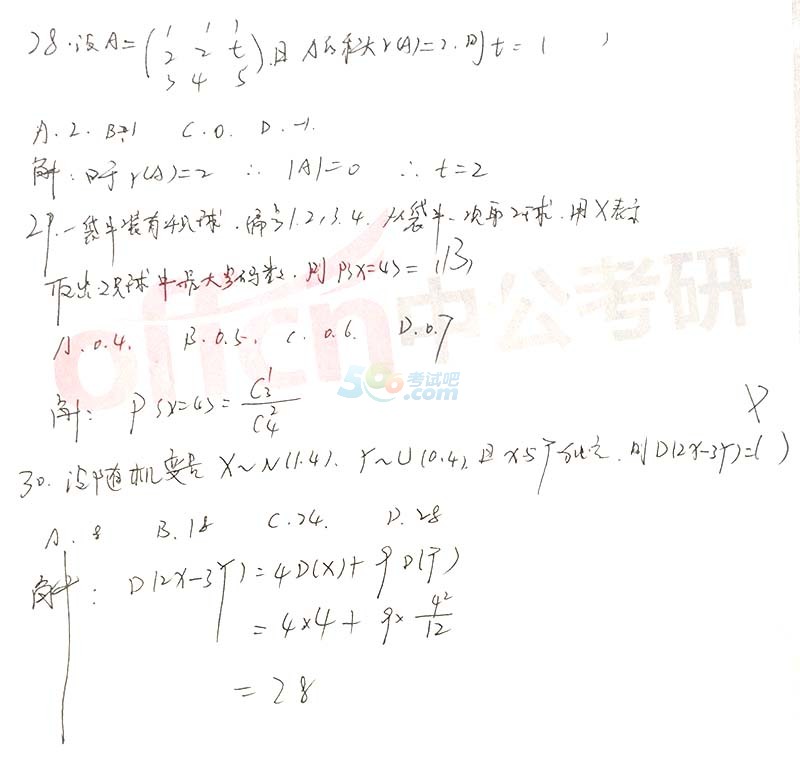 28.设A=(1 1 1
2 2 t
3 4 5),且A的秩为r(A)=2.则t=( )
A.2. B.1 C.0. D.-1.
解:由于r(A)=2 ∴ |A|=0 ∴ t=2
29.一袋中装有4只球.编号1.2,3.4.从袋中一次取2球.用X表示
取出2只球中最大号码数.则P{X=4}=(B)
A.0.4. B.0.5. C.0.6. D.0.7
解: P{X=4}=C₃¹/C₄²
30.设随机变量X~N(1.4).Y~U(0.4),且X与Y独立.则D(2X-3Y)=( )
A.8 B.18 C.24. D.28
解: D(2X-3Y)=4D(X)+9D(Y)
=4×4+9×4²/12
=28
offcn中公考研
566考试吧
.com